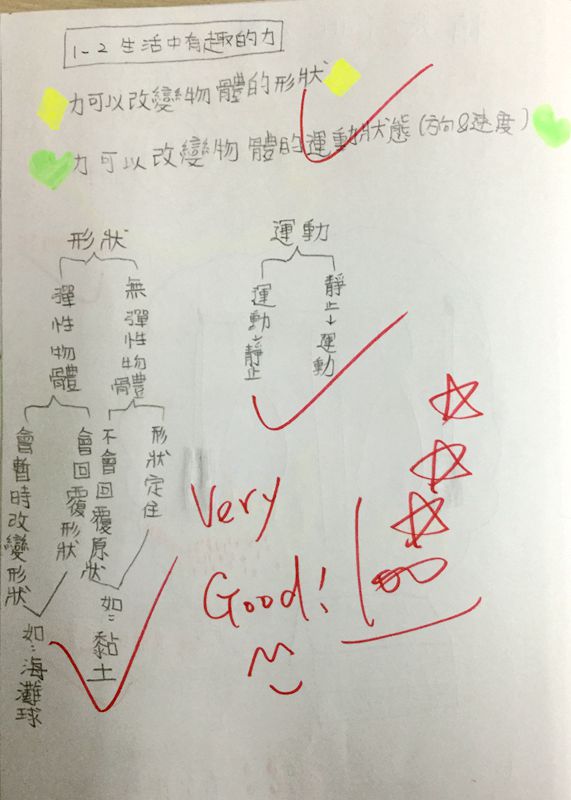 1-2 生活中有趣的力
力可以改變物體的形狀
力可以改變物體的運動狀態(方向&速度)
形狀
彈性物體
會暫時改變形狀
會回覆形狀
如:海灘球
無彈性物體
不會回覆原狀
形狀定住
如:黏土
運動
運動→靜止
靜止→運動
Very
Good!
100